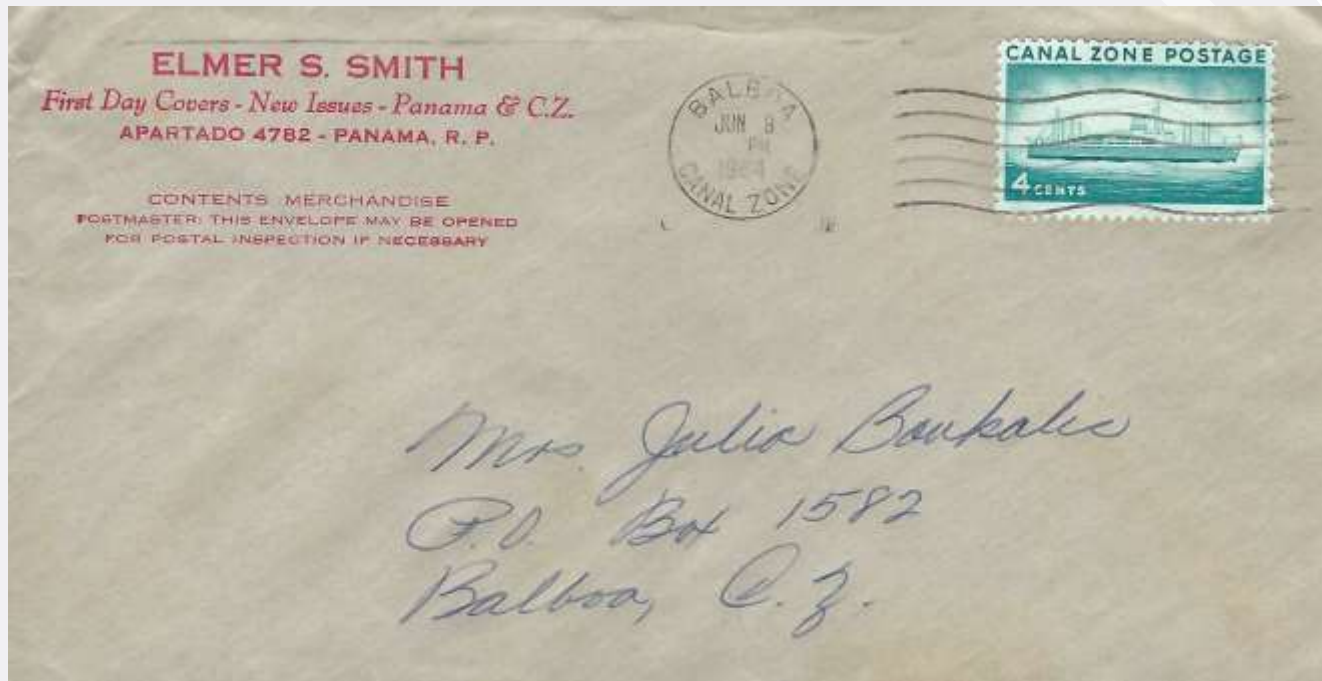 ELMER S. SMITH
First Day Covers - New Issues - Panama & C.Z.
APARTADO 4782 - PANAMA, R. P.
CONTENTS MERCHANDISE
POSTMASTER: THIS ENVELOPE MAY BE OPENED
FOR POSTAL INSPECTION IF NECESSARY
BALBOA
JUN 8
PM
1964
CANAL ZONE
CANAL ZONE POSTAGE
4 CENTS
Mrs. Julia Boukalis
P.O. Box 1582
Balboa, C.Z.